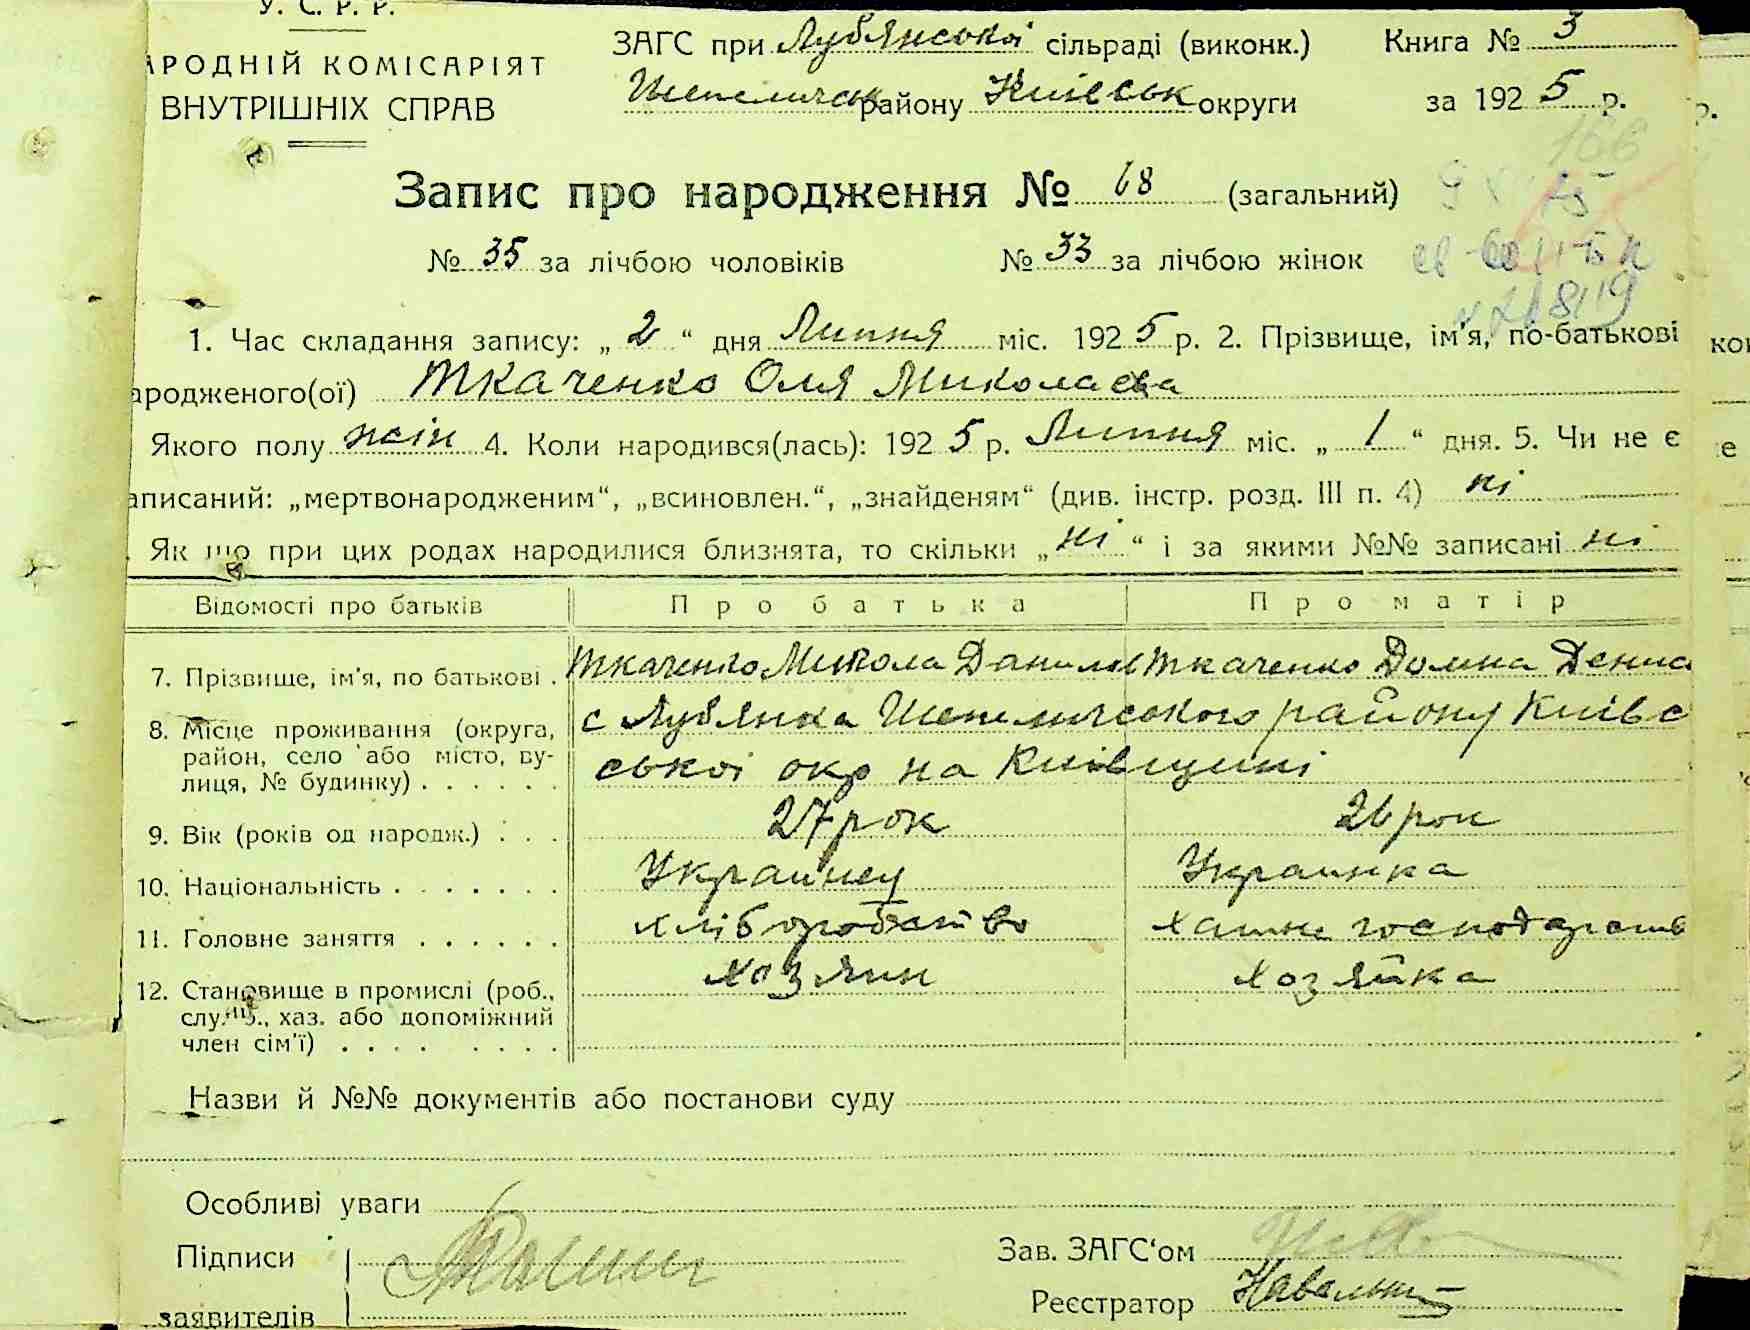 У. С. Р. Р.
АРОДНІЙ КОМІСАРІЯТ
ВНУТРІШНІХ СПРАВ
ЗАГС при Лубянськоі сільраді (виконк.) Книга № 3
Шепеличськ району Київськ округи за 1925 р.
Запис про народження № 68 (загальний)
№ 35 за лічбою чоловіків № 33 за лічбою жінок
1. Час складання запису: „2“ дня Липня міс. 1925 р. 2. Прізвище, ім'я, по-батькові
ародженого(ої) Ткаченко Оля Миколаева
Якого полу жін 4. Коли народився(лась): 1925 р. Липня міс. „1“ дня. 5. Чи не є
аписаний: „мертвонародженим“, „всиновлен.“, „знайденям“ (див. інстр. розд. III п. 4) ні
Як що при цих родах народилися близнята, то скільки „ні“ і за якими №№ записані ні
Відомості про батьків Про батька Про матір
7. Прізвище, ім'я, по батькові . Ткаченко Микола Данилов Ткаченко Домна Денис
8. Місце проживання (округа, район, село або місто, вулиця, № будинку) . . . . . . с Лубянка Шепеличського району Київс
ськоі окр на Київщині
9. Вік (років од народж.) . . . 27 рок 26 рок
10. Національність . . . . . . . Украинец Украинка
11. Головне заняття . . . . . . хліборобство хатнє господарств
12. Становище в промислі (роб., хозяин хозяйка
служ., хаз. або допоміжний
член сім'ї) . . . . . . . .
Назви й №№ документів або постанови суду
Особливі уваги
Підписи
заявителів
Зав. ЗАГС‘ом
Реєстратор